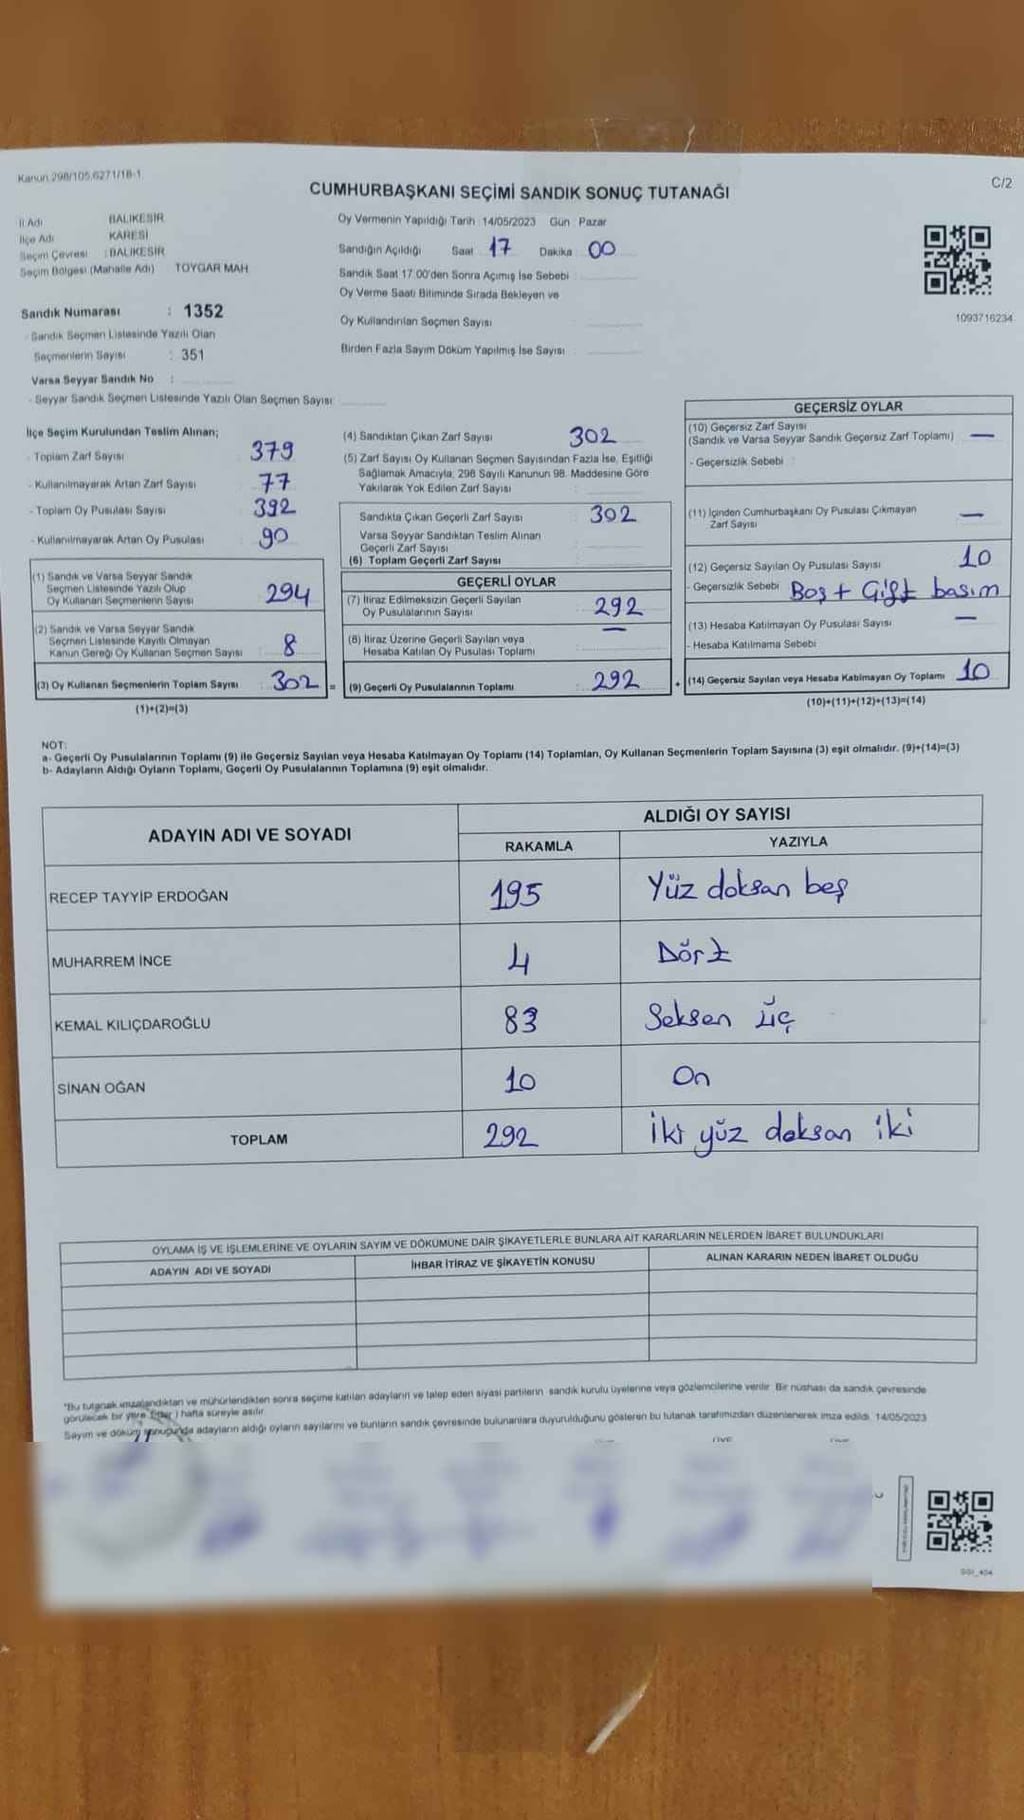 Kanun 298/105,6271/18-1
C/2
CUMHURBAŞKANI SEÇİMİ SANDIK SONUÇ TUTANAĞI
İl Adı BALIKESİR
İlçe Adı KARESİ
Seçim Çevresi : BALIKESİR
Seçim Bölgesi (Mahalle Adı) TOYGAR MAH
Sandık Numarası : 1352
- Sandık Seçmen Listesinde Yazılı Olan
Seçmenlerin Sayısı : 351
Varsa Seyyar Sandık No :
- Seyyar Sandık Seçmen Listesinde Yazılı Olan Seçmen Sayısı
Oy Vermenin Yapıldığı Tarih 14/05/2023 Gün Pazar
Sandığın Açıldığı Saat 17 Dakika 00
Sandık Saat 17.00'den Sonra Açımış İse Sebebi
Oy Verme Saati Bitiminde Sırada Bekleyen ve
Oy Kullandırılan Seçmen Sayısı
Birden Fazla Sayım Döküm Yapılmış İse Sayısı
1093716234
İlçe Seçim Kurulundan Teslim Alınan;
- Toplam Zarf Sayısı 379
- Kullanılmayarak Artan Zarf Sayısı 77
- Toplam Oy Pusulası Sayısı 392
- Kullanılmayarak Artan Oy Pusulası 90
(1) Sandık ve Varsa Seyyar Sandık
Seçmen Listesinde Yazılı Olup
Oy Kullanan Seçmenlerin Sayısı 294
(2) Sandık ve Varsa Seyyar Sandık
Seçmen Listesinde Kayıtlı Olmayan
Kanun Gereği Oy Kullanan Seçmen Sayısı 8
(3) Oy Kullanan Seçmenlerin Toplam Sayısı : 302 =
(1)+(2)=(3)
(4) Sandıktan Çıkan Zarf Sayısı 302
(5) Zarf Sayısı Oy Kullanan Seçmen Sayısından Fazla İse, Eşitliği
Sağlamak Amacıyla, 298 Sayılı Kanunun 98. Maddesine Göre
Yakılarak Yok Edilen Zarf Sayısı
Sandıkta Çıkan Geçerli Zarf Sayısı 302
Varsa Seyyar Sandıktan Teslim Alınan
Geçerli Zarf Sayısı
(6) Toplam Geçerli Zarf Sayısı
GEÇERLİ OYLAR
(7) İtiraz Edilmeksizin Geçerli Sayılan
Oy Pusulalarının Sayısı 292
(8) İtiraz Üzerine Geçerli Sayılan veya
Hesaba Katılan Oy Pusulası Toplamı —
(9) Geçerli Oy Pusulalarının Toplamı : 292 +
GEÇERSİZ OYLAR
(10) Geçersiz Zarf Sayısı
(Sandık ve Varsa Seyyar Sandık Geçersiz Zarf Toplamı) —
- Geçersizlik Sebebi
(11) İçinden Cumhurbaşkanı Oy Pusulası Çıkmayan
Zarf Sayısı —
(12) Geçersiz Sayılan Oy Pusulası Sayısı 10
- Geçersizlik Sebebi Boş + Gift basım
(13) Hesaba Katılmayan Oy Pusulası Sayısı —
- Hesaba Katılmama Sebebi
(14) Geçersiz Sayılan veya Hesaba Katılmayan Oy Toplamı 10
(10)+(11)+(12)+(13)=(14)
NOT:
a- Geçerli Oy Pusulalarının Toplamı (9) ile Geçersiz Sayılan veya Hesaba Katılmayan Oy Toplamı (14) Toplamları, Oy Kullanan Seçmenlerin Toplam Sayısına (3) eşit olmalıdır. (9)+(14)=(3)
b- Adayların Aldığı Oyların Toplamı, Geçerli Oy Pusulalarının Toplamına (9) eşit olmalıdır.
ADAYIN ADI VE SOYADI ALDIĞI OY SAYISI
RAKAMLA YAZIYLA
RECEP TAYYİP ERDOĞAN 195 Yüz doksan beş
MUHARREM İNCE 4 Dört
KEMAL KILIÇDAROĞLU 83 Seksen üç
SİNAN OĞAN 10 On
TOPLAM 292 İki yüz doksan iki
OYLAMA İŞ VE İŞLEMLERİNE VE OYLARIN SAYIM VE DÖKÜMÜNE DAİR ŞİKAYETLERLE BUNLARA AİT KARARLARIN NELERDEN İBARET BULUNDUKLARI
ADAYIN ADI VE SOYADI İHBAR İTİRAZ VE ŞİKAYETİN KONUSU ALINAN KARARIN NEDEN İBARET OLDUĞU
"Bu tutanak imzalandıktan ve mühürlendikten sonra seçime katılan adayların ve talep eden siyasi partilerin sandık kurulu üyelerine veya gözlemcilerine verilir. Bir nüshası da sandık çevresinde
görülecek bir yere hafta süreyle asılır.
Sayım ve döküm sonucunda adayların aldığı oyların sayılarını ve bunların sandık çevresinde bulunanlara duyurulduğunu gösteren bu tutanak tarafımızdan düzenlenerek imza edildi. 14/05/2023